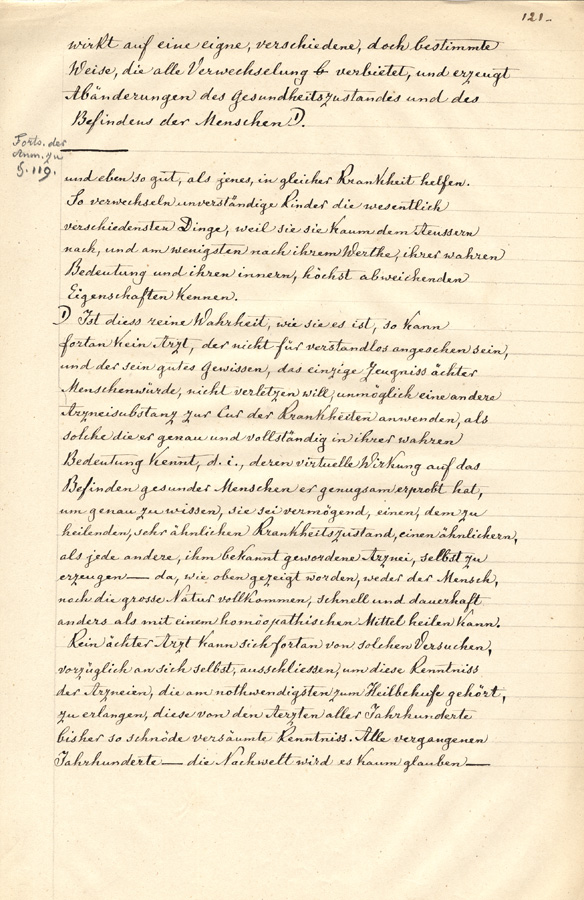 121-
wirkt auf eine eigne, verschiedene, doch bestimmte
Weise, die alle Verwechselung verbietet, und erzeugt
Abänderungen des Gesundheitszustandes und des
Befindens der Menschen 1).
Forts. der
Anm. zu
§. 119.
und eben so gut, als jenes, in gleicher Krankheit helfen.
So verwechseln unverständige Kinder die wesentlich
verschiedensten Dinge, weil sie sie kaum dem Aeussern
nach, und am wenigsten nach ihrem Werthe, ihrer wahren
Bedeutung und ihren innern, höchst abweichenden
Eigenschaften kennen.
1) Ist diess reine Wahrheit, wie sie es ist, so kann
fortan kein Arzt, der nicht für verstandlos angesehen sein,
und der sein gutes Gewissen, das einzige Zeugniss ächter
Menschenwürde, nicht verletzen will, unmöglich eine andere
Arzneisubstanz zur Cur der Krankheiten anwenden, als
solche die er genau und vollständig in ihrer wahren
Bedeutung kennt, d. i., deren virtuelle Wirkung auf das
Befinden gesunder Menschen er genugsam erprobt hat,
um genau zu wissen, sie sei vermögend, einen, dem zu
heilenden, sehr ähnlichen Krankheitszustand, einen ähnlichern,
als jede andere, ihm bekannt gewordene Arznei, selbst zu
erzeugen — da, wie oben gezeigt worden, weder der Mensch,
noch die grosse Natur vollkommen, schnell und dauerhaft
anders als mit einem homöopathischen Mittel heilen kann.
Kein ächter Arzt kann sich fortan von solchen Versuchen,
vorzüglich an sich selbst, ausschliessen, um diese Kenntniss
der Arzneien, die am nothwendigsten zum Heilbehufe gehört,
zu erlangen, diese von den Aerzten aller Jahrhunderte
bisher so schnöde versäumte Kenntniss. Alle vergangenen
Jahrhunderte — die Nachwelt wird es kaum glauben —